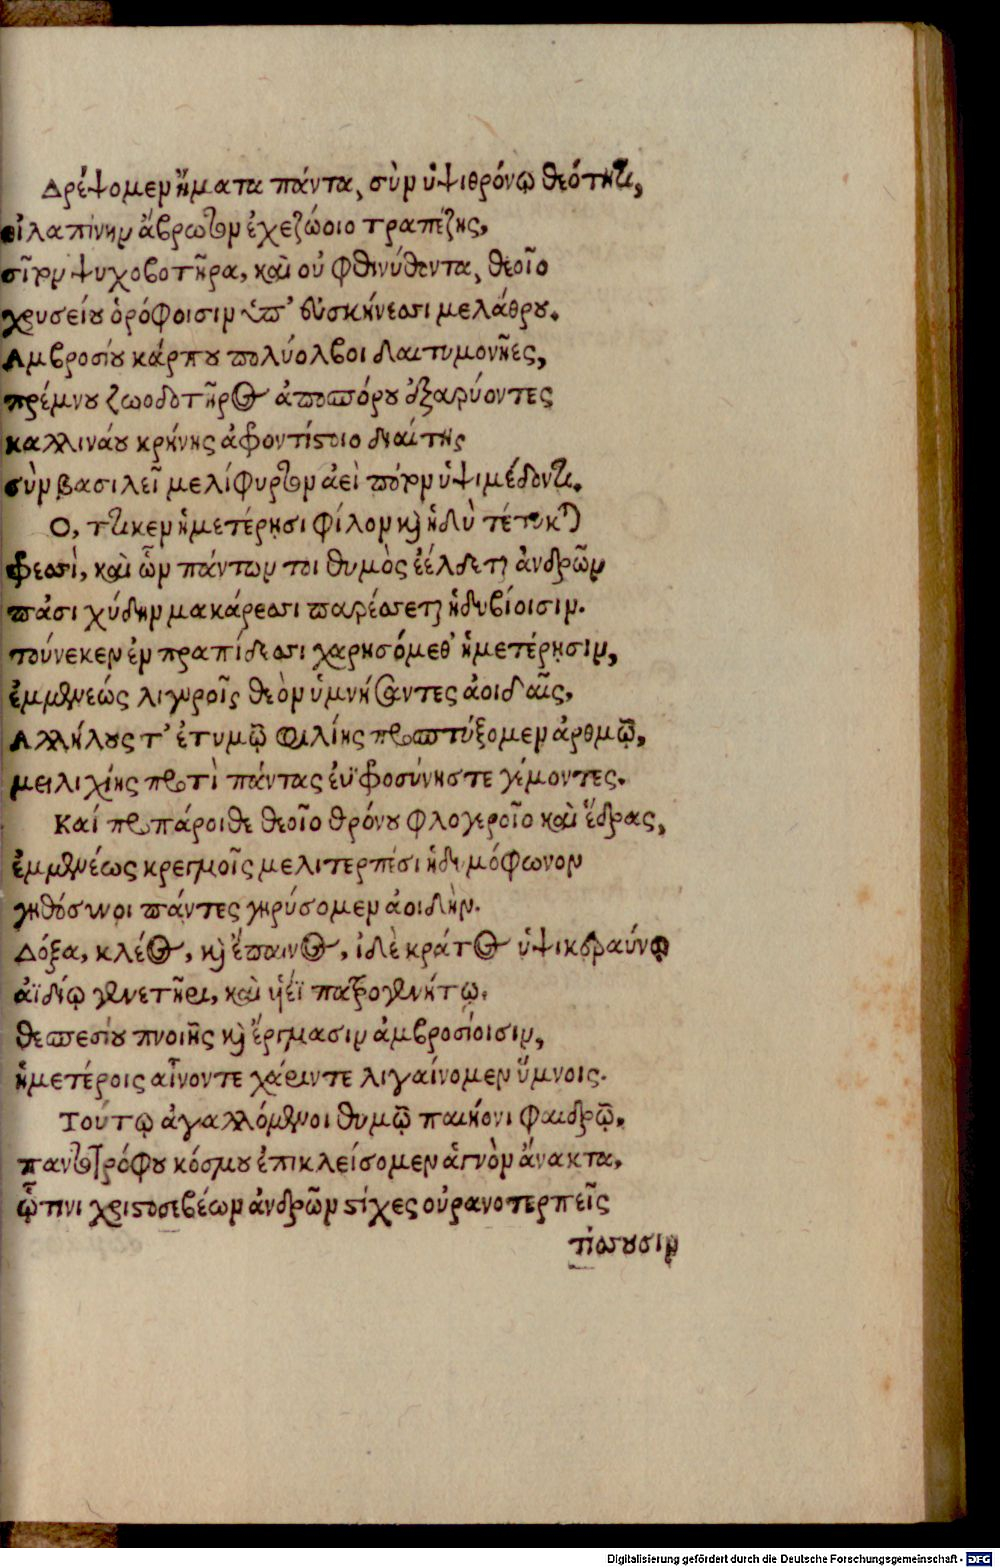 Δρέψομεν ἤματα πάντα, σὺν ὑψιθρόνῳ θεότητι,
εἰλαπίνην ἄβρωτον ἐχεζώοιο τραπέζης,
σῖτον ψυχοβοτῆρα, καὶ οὐ φθινύθεντα, θεοῖο
χρυσείου ὀρόφοισιν ὑπ' εὐσκήνεσσι μελάθρου.
Αμβροσίου κάρπου πολύολβοι δαιτυμονῆες,
πρέμνου ζωοδοτῆρος ἀποσπόρου ἐξαρύοντες
καλλινάου κρήνης ἀφοντίστοιο διαίτης
σὺν βασιλεῖ μελίφυρτον ἀεὶ πότον ὑψιμέδοντι.
Ο, τικεν ἡμετέρησι φίλον καὶ ἡδὺ τέτυκται
φρεσὶ, καὶ ὧν πάντων τοι θυμὸς ἐέλδεται ἀνδρῶν
πᾶσι χύδην μακάρεσσι παρέσσεται ἡδυβίοισιν.
τούνεκεν ἐν πραπίδεσσι χαρησόμεθ' ἡμετέρησιν,
ἐμμενεώς λιγυροῖς θεὸν ὑμνήσαντες ἀοιδαῖς,
Αλλήλους τ' ἐτυμῷ φιλίης προσπτύξομεν ἀρθμῷ,
μειλιχίης προτὶ πάντας ἐϋφροσύνηστε γέμοντες.
Καί προπάροιθε θεοῖο θρόνου φλογεροῖο καὶ ἕδρας,
ἐμμενέως κρεγμοῖς μελιτερπέσι ἡδὲ μόφωνον
γηθόσυνοι πάντες γηρύσομεν ἀοιδήν.
Δόξα, κλέος, καὶ ἔπαινος, ἰδὲ κράτος ὑψικεραύνῳ
ἀϊδίῳ γενετῆρι, καὶ ἡέϊ πατρογενήτῳ.
θεσπεσίου πνοιῆς καὶ ἔργμασιν ἀμβροσίοισιν,
ἡμετέροις αἶνοντε χάριντε λιγαίνομεν ὕμνοις.
Τούτῳ ἀγαλλόμενοι θυμῷ παιήονι φαιδρῷ,
παντοτρόφου κόσμου ἐπικλείσομεν ἁγνὸν ἄνακτα,
ᾧτινι χριστοσεβέων ἀνδρῶν στίχες οὐρανοτερπεῖς
τίσουσιν
Digitalisierung gefördert durch die Deutsche Forschungsgemeinschaft - DFG